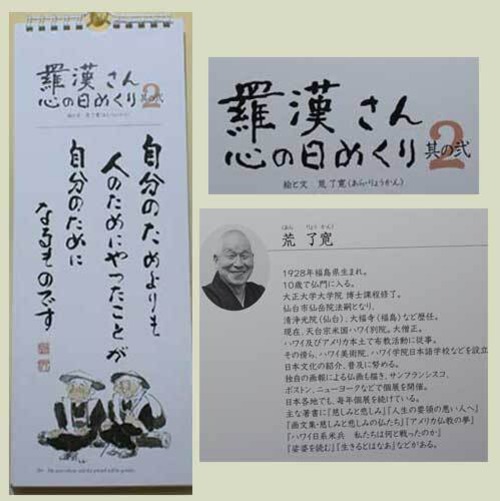 羅漢さん
心の日めくり 其の弐
2
絵と文 荒了寛(あらりょうかん)
自分のためよりも
人のためにやったことが
自分のために
なるものです
羅漢さん
心の日めくり 其の弐
2
絵と文 荒 了寛(あら・りょうかん)
(あら りょう かん)
荒 了寛
1928年福島県生まれ。
10歳で仏門に入る。
大正大学大学院 博士課程修了。
仙台市仙岳院法嗣となり、
清浄光院(仙台)、大福寺(福島)など歴任。
現在、天台宗米国・ハワイ別院。大僧正。
ハワイ及びアメリカ本土で布教活動に従事。
その傍ら、ハワイ美術院、ハワイ学院日本語学校などを設立
日本文化の紹介、普及に努める。
独自の画報による仏画も描き、サンフランシスコ、
ボストン、ニューヨークなどで個展を開催。
日本各地でも、毎年個展を続けている。
主な著書に『慈しみと悲しみ』『人生の要領の悪い人へ』
『画文集・慈しみと悲しみの仏たち』『アメリカ仏教の夢』
『ハワイ日系米兵 私たちは何と戦ったのか』
『娑婆を読む』『生きるとはなあ』などがある。